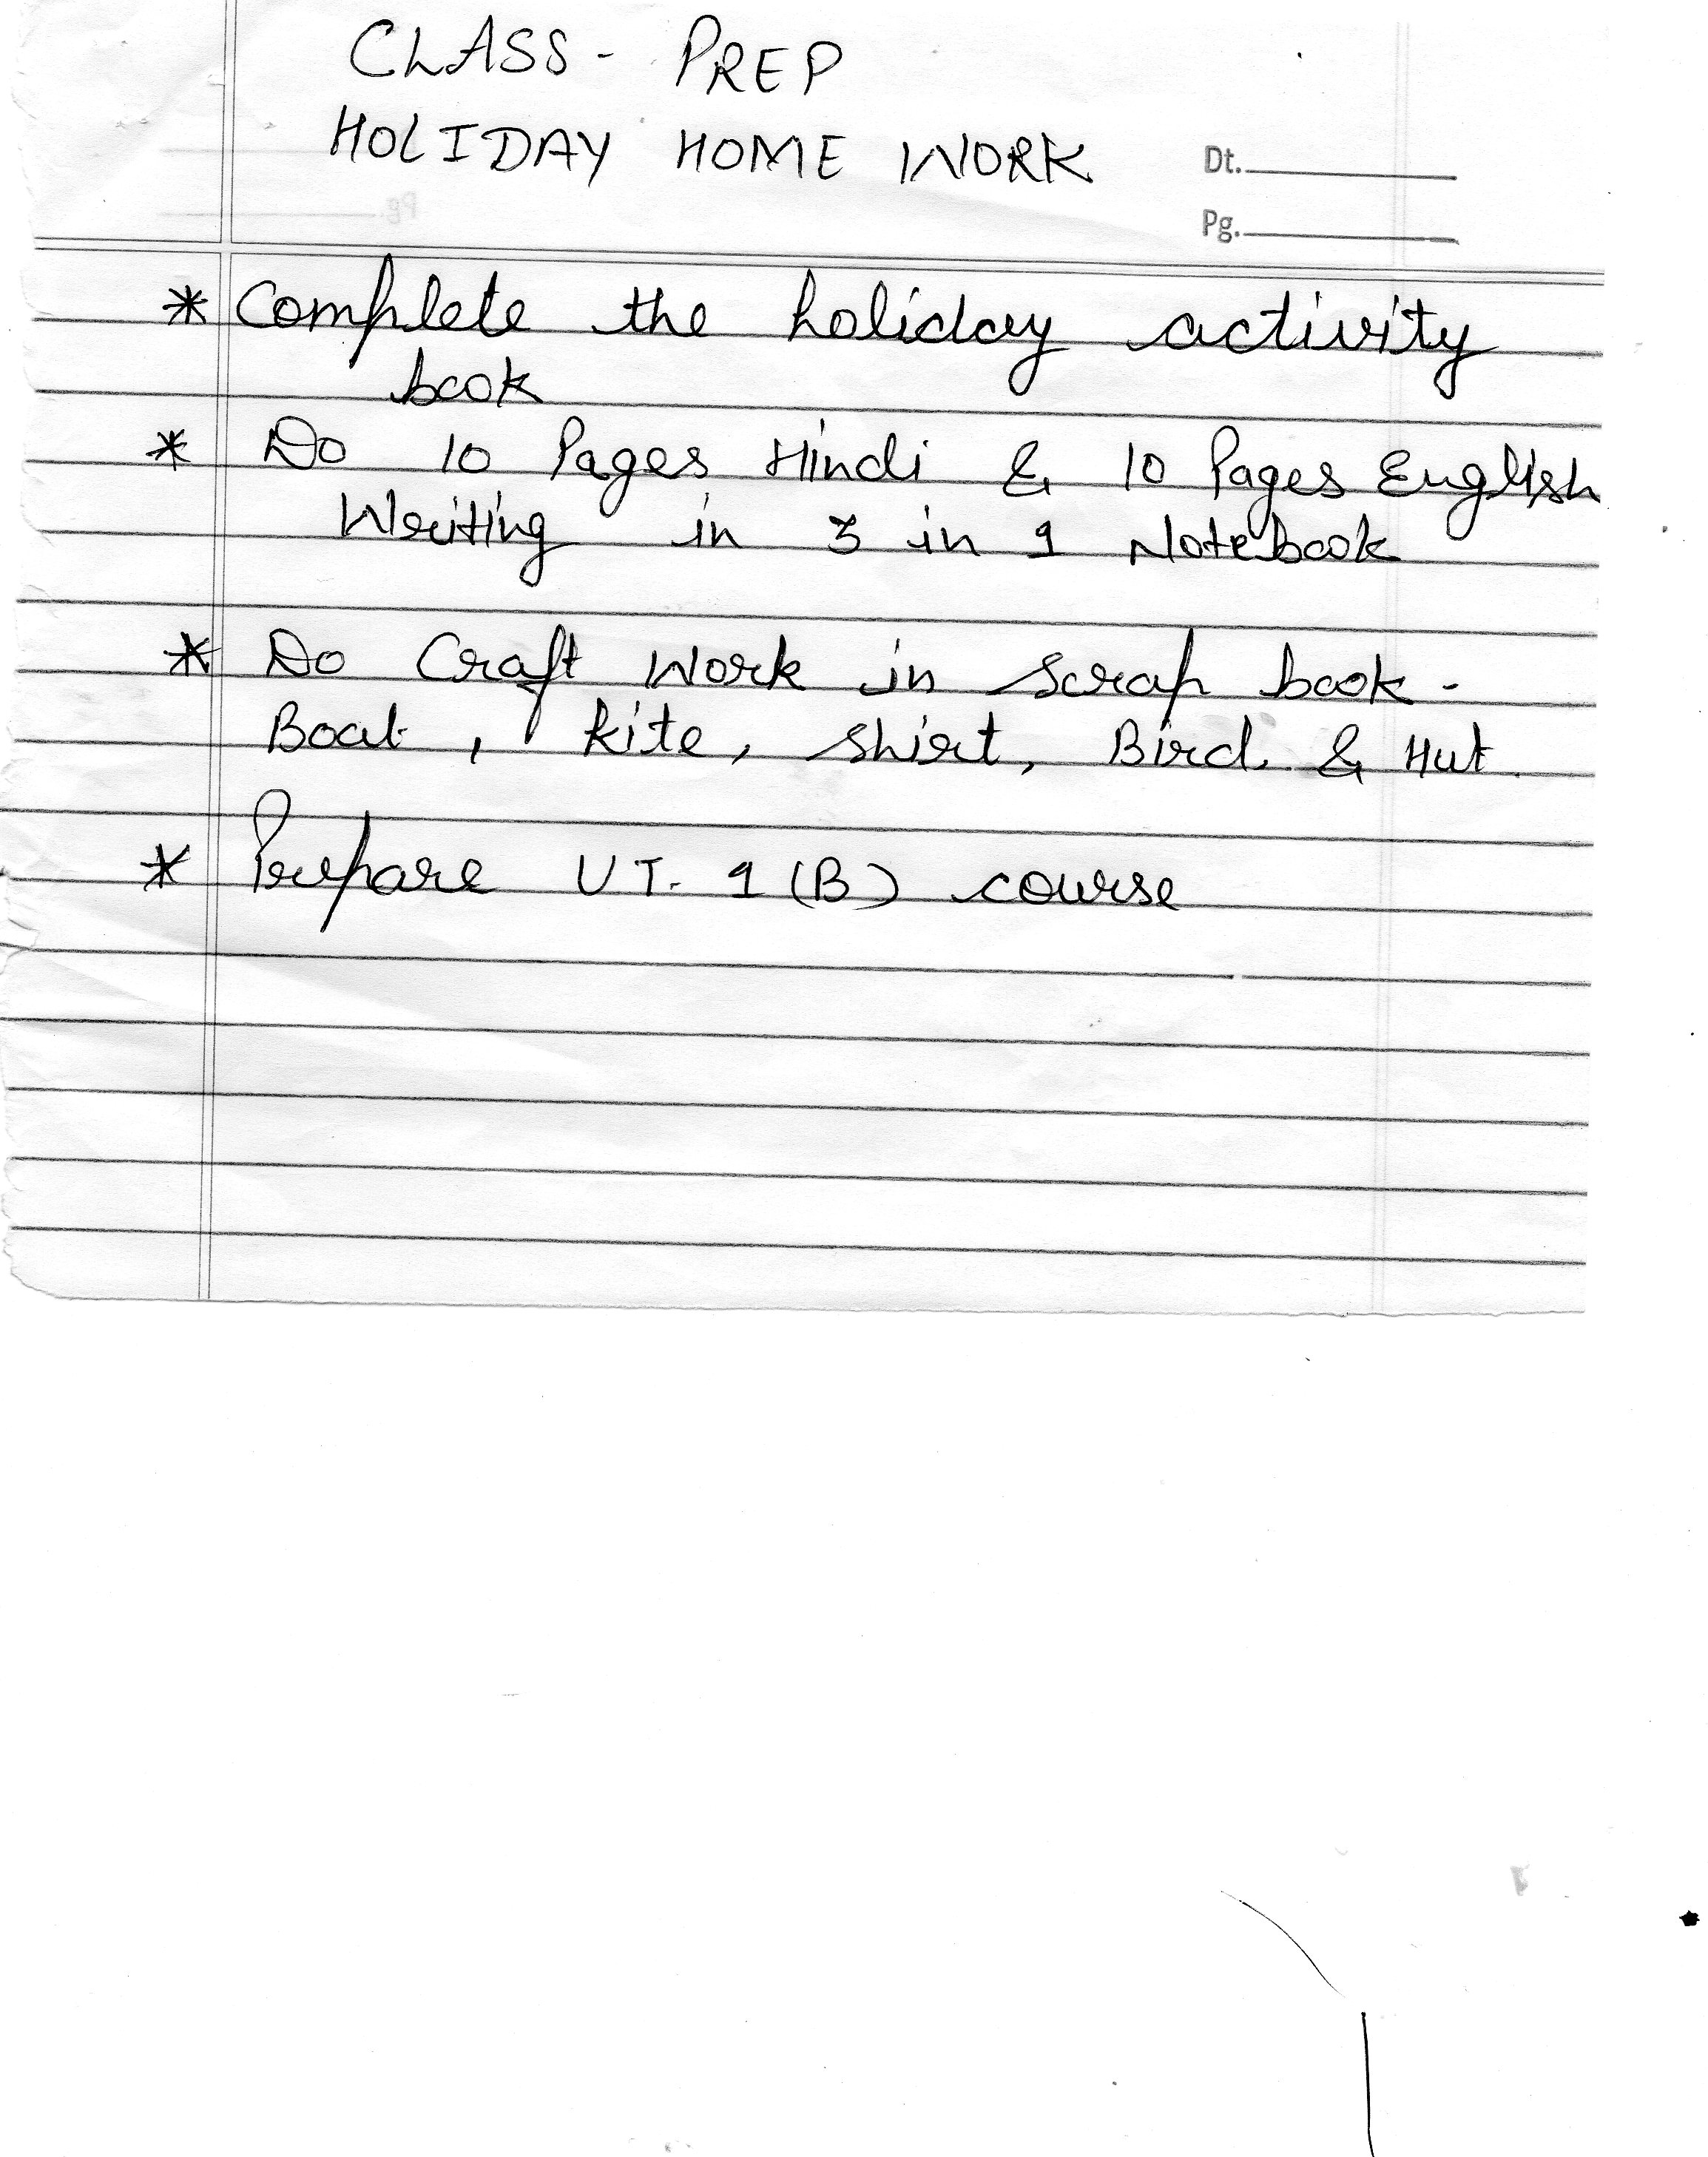 CLASS - PREP
HOLIDAY HOME WORK
Dt.
Pg.
* Complete the holiday activity
book
* Do 10 Pages Hindi & 10 Pages English
Writing in 3 in 1 Notebook
* Do Craft Work in scrap book -
Boat, kite, shirt, Bird. & Hut.
* Prepare UT. 1 (B) course